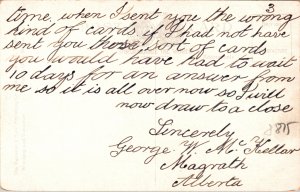 3
time, when I sent you the wrong
kind of cards, if I had not have
sent you those, sort of cards
you would have had to wait
10 days for an answer from
me so it is all over now so I will
now draw to a close
Sincerely
George W Mc Kellar
Magrath
Alberta